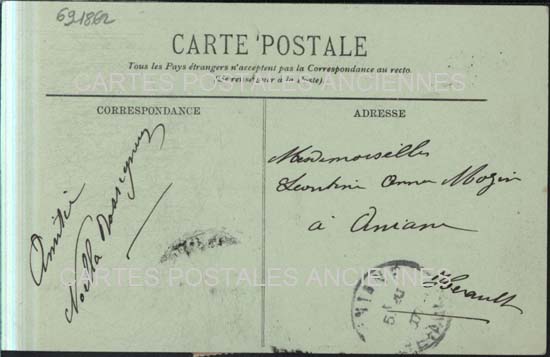 691862
CARTE POSTALE
Tous les Pays étrangers n'acceptent pas la Correspondance au recto.
(Se renseigner à la Poste).
CARTES POSTALES ANCIENNES
CORRESPONDANCE
ADRESSE
Amitié
Noélla
Mademoiselles
Léontine Anna Mazin
à Aniane
Hérault
CARTES POSTALES ANCIENNES